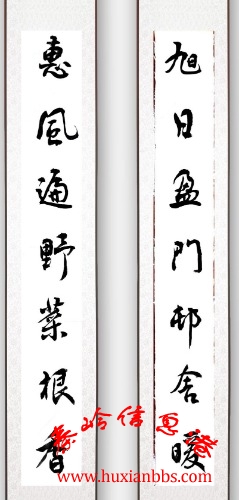 旭日盈門邨舍暖
惠風遍野菜根香
www.huxianbbs.com